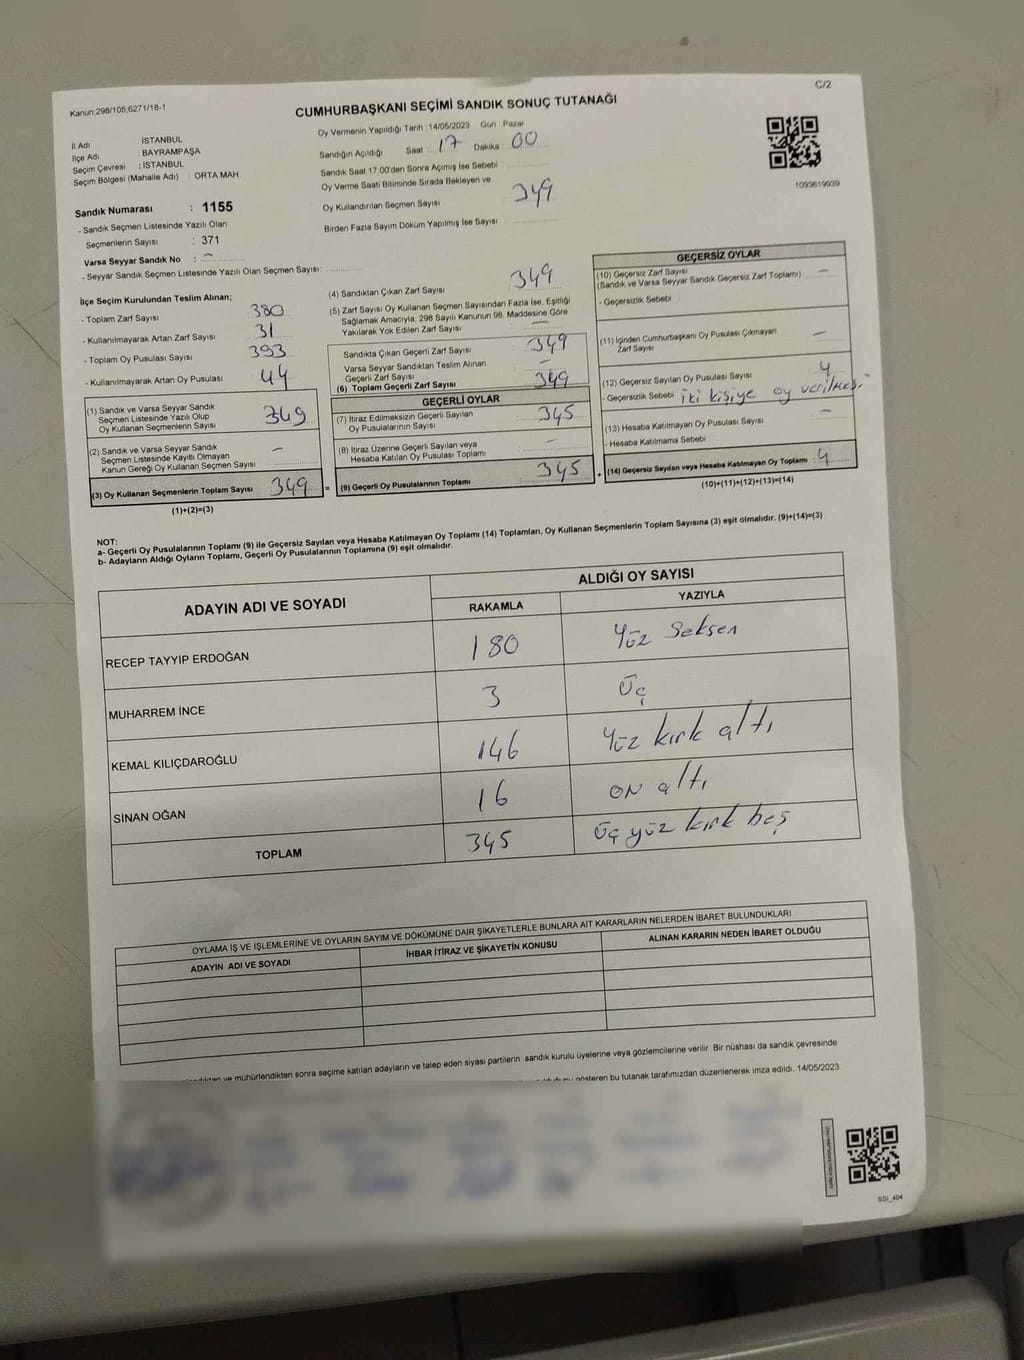 Kanun:298/105,6271/18-1
C/2
CUMHURBAŞKANI SEÇİMİ SANDIK SONUÇ TUTANAĞI
İl Adı : İSTANBUL
İlçe Adı : BAYRAMPAŞA
Seçim Çevresi : İSTANBUL
Seçim Bölgesi (Mahalle Adı) : ORTA MAH.
Sandık Numarası : 1155
- Sandık Seçmen Listesinde Yazılı Olan
Seçmenlerin Sayısı : 371
Varsa Seyyar Sandık No : -
- Seyyar Sandık Seçmen Listesinde Yazılı Olan Seçmen Sayısı:
Oy Vermenin Yapıldığı Tarih :14/05/2023 Gün : Pazar
Sandığın Açıldığı Saat 17 Dakika 00
Sandık Saat 17:00'den Sonra Açımış İse Sebebi
Oy Verme Saati Bitiminde Sırada Bekleyen ve
Oy Kullandırılan Seçmen Sayısı 349
Birden Fazla Sayım Döküm Yapılmış İse Sayısı
1093619939
İlçe Seçim Kurulundan Teslim Alınan;
- Toplam Zarf Sayısı 380
- Kullanılmayarak Artan Zarf Sayısı 31
- Toplam Oy Pusulası Sayısı 393
- Kullanılmayarak Artan Oy Pusulası 44
(1) Sandık ve Varsa Seyyar Sandık
Seçmen Listesinde Yazılı Olup
Oy Kullanan Seçmenlerin Sayısı 349
(2) Sandık ve Varsa Seyyar Sandık
Seçmen Listesinde Kayıtlı Olmayan
Kanun Gereği Oy Kullanan Seçmen Sayısı -
(3) Oy Kullanan Seçmenlerin Toplam Sayısı 349
(1)+(2)=(3)
(4) Sandıktan Çıkan Zarf Sayısı 349
(5) Zarf Sayısı Oy Kullanan Seçmen Sayısından Fazla İse, Eşitliği
Sağlamak Amacıyla; 298 Sayılı Kanunun 98. Maddesine Göre
Yakılarak Yok Edilen Zarf Sayısı -
Sandıkta Çıkan Geçerli Zarf Sayısı 349
Varsa Seyyar Sandıktan Teslim Alınan
Geçerli Zarf Sayısı -
(6) Toplam Geçerli Zarf Sayısı 349
GEÇERLİ OYLAR
(7) İtiraz Edilmeksizin Geçerli Sayılan
Oy Pusulalarının Sayısı 345
(8) İtiraz Üzerine Geçerli Sayılan veya
Hesaba Katılan Oy Pusulası Toplamı -
= (9) Geçerli Oy Pusulalarının Toplamı 345
GEÇERSİZ OYLAR
(10) Geçersiz Zarf Sayısı -
(Sandık ve Varsa Seyyar Sandık Geçersiz Zarf Toplamı)
- Geçersizlik Sebebi
(11) İçinden Cumhurbaşkanı Oy Pusulası Çıkmayan
Zarf Sayısı -
(12) Geçersiz Sayılan Oy Pusulası Sayısı 4
- Geçersizlik Sebebi iki kişiye oy verilmesi
(13) Hesaba Katılmayan Oy Pusulası Sayısı -
- Hesaba Katılmama Sebebi
+ (14) Geçersiz Sayılan veya Hesaba Katılmayan Oy Toplamı : 4
(10)+(11)+(12)+(13)=(14)
NOT:
a- Geçerli Oy Pusulalarının Toplamı (9) ile Geçersiz Sayılan veya Hesaba Katılmayan Oy Toplamı (14) Toplamları, Oy Kullanan Seçmenlerin Toplam Sayısına (3) eşit olmalıdır. (9)+(14)=(3)
b- Adayların Aldığı Oyların Toplamı, Geçerli Oy Pusulalarının Toplamına (9) eşit olmalıdır.
ADAYIN ADI VE SOYADI
ALDIĞI OY SAYISI
RAKAMLA YAZIYLA
RECEP TAYYİP ERDOĞAN 180 Yüz Seksen
MUHARREM İNCE 3 Üç
KEMAL KILIÇDAROĞLU 146 Yüz kırk altı
SİNAN OĞAN 16 on altı
TOPLAM 345 Üç yüz kırk beş
OYLAMA İŞ VE İŞLEMLERİNE VE OYLARIN SAYIM VE DÖKÜMÜNE DAİR ŞİKAYETLERLE BUNLARA AİT KARARLARIN NELERDEN İBARET BULUNDUKLARI
ADAYIN ADI VE SOYADI İHBAR İTİRAZ VE ŞİKAYETİN KONUSU ALINAN KARARIN NEDEN İBARET OLDUĞU
ve mühürlendikten sonra seçime katılan adayların ve talep eden siyasi partilerin sandık kurulu üyelerine veya gözlemcilerine verilir. Bir nüshası da sandık çevresinde
gösteren bu tutanak tarafımızdan düzenlenerek imza edildi. 14/05/2023
SSI_404